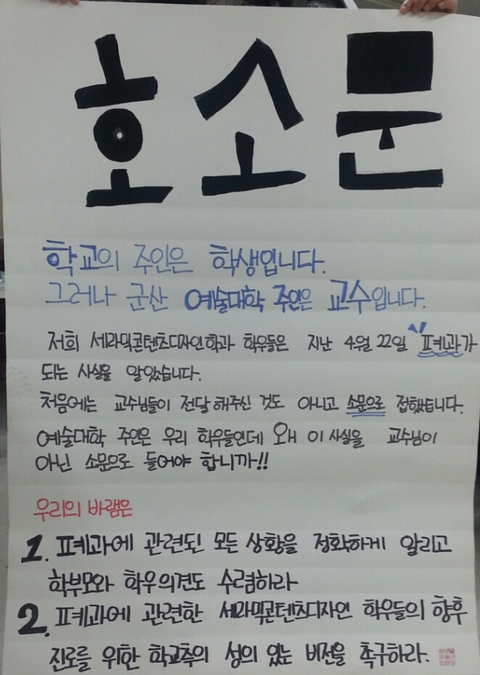 호소문
학교의 주인은 학생입니다.
그러나 군산 예술대학 주인은 교수입니다.
저희 세라믹콘텐츠디자인학과 학우들은 지난 4월 22일 "폐과가
되는 사실을 알았습니다.
처음에는 교수님들이 전달해주신 것도 아니고 소문으로 접했습니다.
예술대학 주인은 우리 학우들인데 왜 이 사실을 교수님이
아닌 소문으로 들어야 합니까!!
우리의 바램은
1. 폐과에 관련된 모든 상황을 정확하게 알리고
학부모와 학우의견도 수렴하라
2. 폐과에 관련한 세라믹콘텐츠디자인 학우들의 향후
진로를 위한 학교측의 성의 있는 비전을 촉구하라.